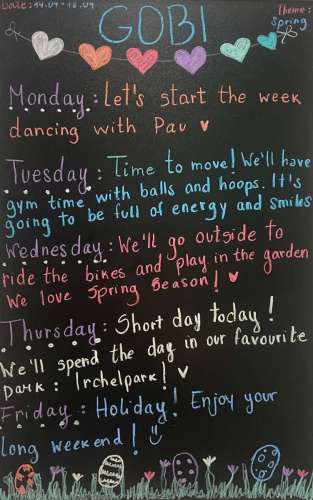 Date: 14.04 - 18.04
Theme:
Spring
GOBI
Monday: Let's start the week
dancing with Pau
Tuesday: Time to move! We'll have
gym time with balls and hoops. It's
going to be full of energy and smiles
Wednesday: We'll go outside to
ride the bikes and play in the garden
We love Spring Season!
Thursday: Short day today!
We'll spend the day in our favourite
park: Irchelpark!
Friday: Holiday! Enjoy your
long weekend!